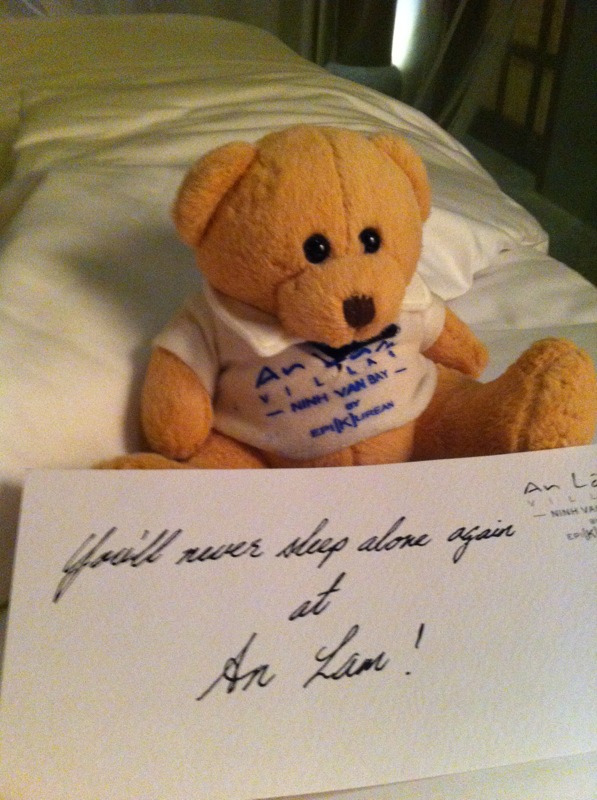 An Lam
VILLAS
— NINH VAN BAY —
BY
EPI[K]UREAN
An Lã
VILL
— NINH VAN
BY
EPI[K]
You'll never sleep alone again
at
An Lam!